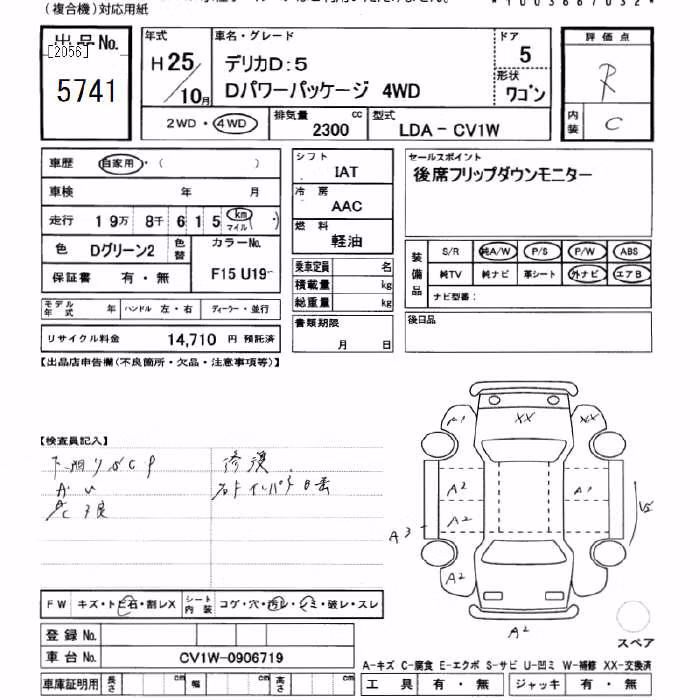 (複合機)対応用紙
出品No.
[2056]
5741
年式
H25/10月
車名・グレード
デリカD:5
Dパワーパッケージ 4WD
ドア
5
形状
ワゴン
2WD・4WD
排気量
2300 cc
型式
LDA-CV1W
評価点
R
内装
C
車歴 自家用・( )
車検 年 月
走行 19万 8千 615 km マイル( )
色 Dグリーン2 色替 カラーNo.
保証書 有・無 F15 U19
モデル年式 年 ハンドル 左・右 ディーラー・並行
リサイクル料金 14,710 円 預託済
シフト
IAT
冷房
AAC
燃料
軽油
乗車定員 名
積載量 kg
総重量 kg
書類期限
月 日
セールスポイント
後席フリップダウンモニター
装備品
S/R 純A/W P/S P/W ABS
純TV 純ナビ 革シート 外ナビ エアB
ナビ型番:
後日品
【出品店申告欄(不良箇所・欠品・注意事項等)】
【検査員記入】
修復
FW キズ・トビ石・割レX シート内装 コゲ・穴・汚レ・シミ・破レ・スレ
登録No.
車台No. CV1W-0906719
車庫証明用 長さ cm 幅 cm 高さ cm
A1
XX
XX
A2
A1
A2
A3
A2
A2
スペア
A-キズ C-腐食 E-エクボ S-サビ U-凹ミ W-補修 XX-交換済
工具 有・無 ジャッキ 有・無